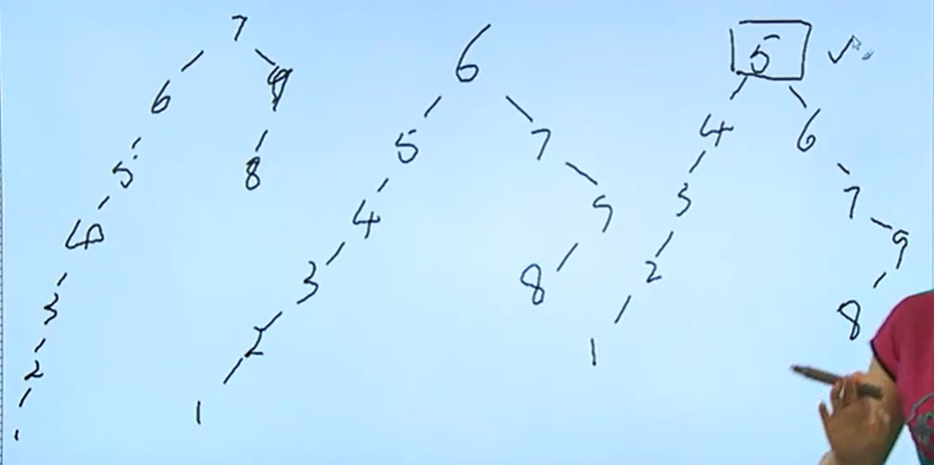 7
6 9
5 8
4
3
2
1
6
5 7
4 9
3 8
2
1
5 ✓
4 6
3 7
2 9
1 8